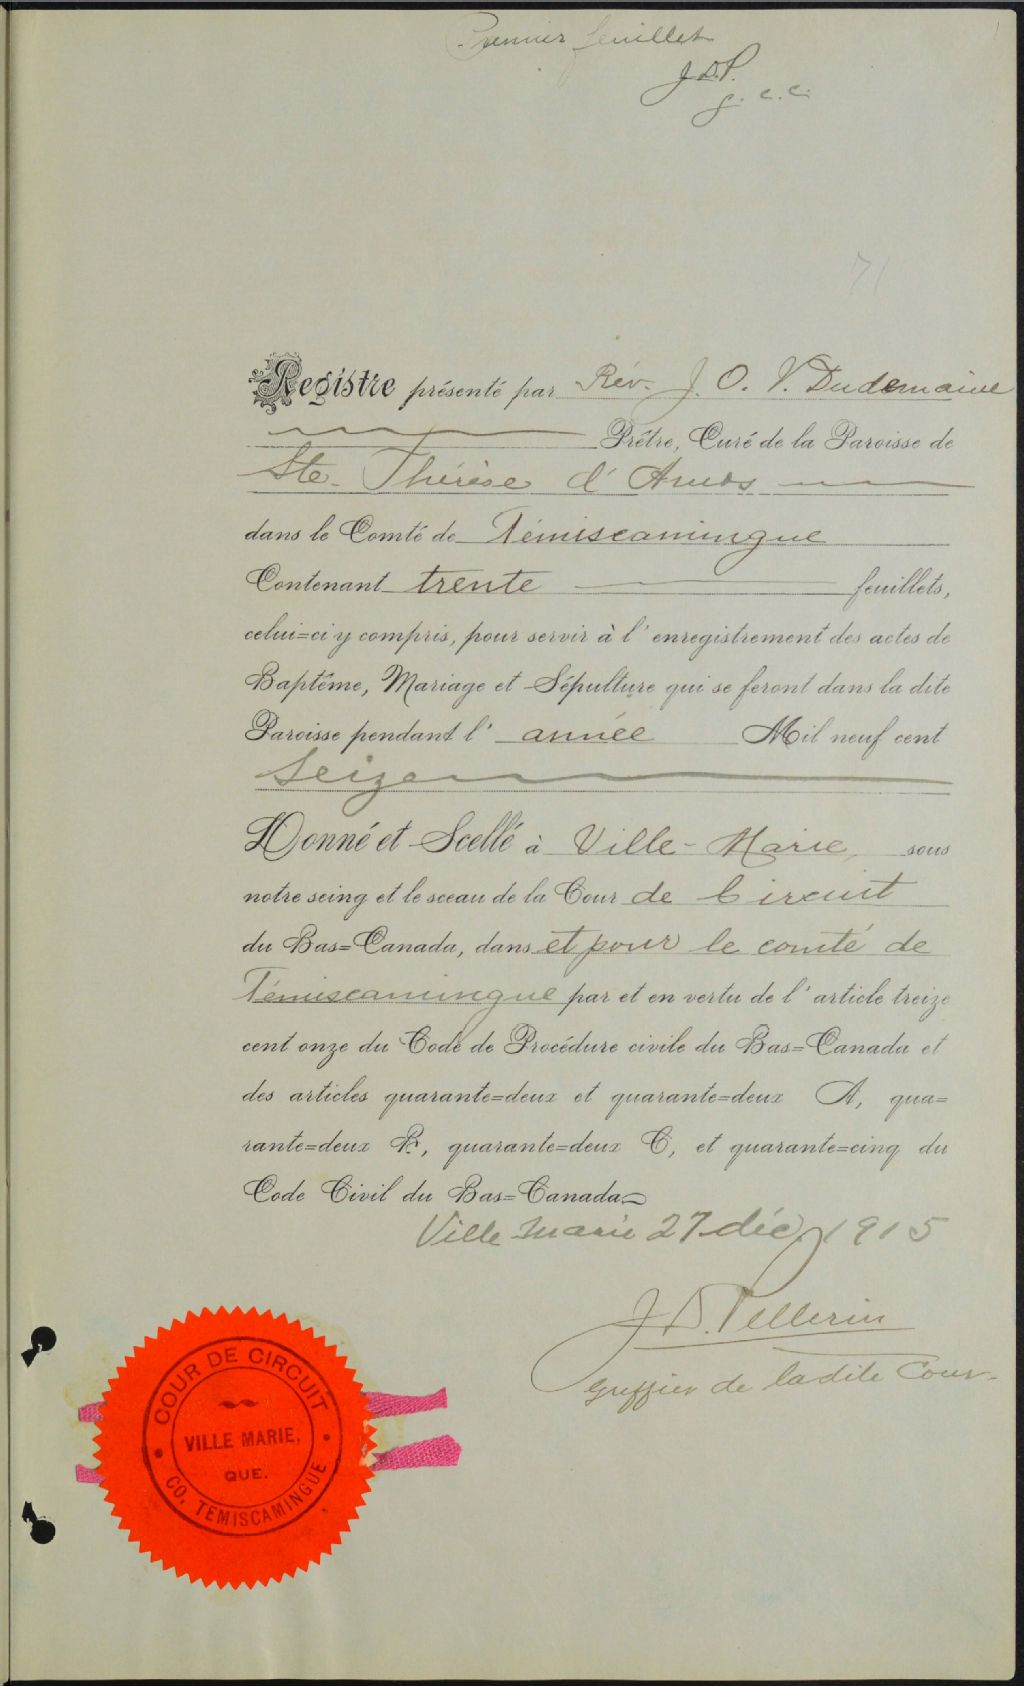 Premier feuillet
J.D.P.
g. c. c.
71
Registre présenté par Rév. J. O. V. Dudemaine
Prêtre, Curé de la Paroisse de
Ste- Thérèse d'Amos
dans le Comté de Témiscamingue
Contenant trente feuillets,
celui=ci y compris, pour servir à l'enregistrement des actes de
Baptême, Mariage et Sépulture qui se feront dans la dite
Paroisse pendant l'année Mil neuf cent
Seize
Donné et Scellé à Ville-Marie, sous
notre seing et le sceau de la Cour de Circuit
du Bas=Canada, dans et pour le comté de
Témiscamingue par et en vertu de l'article treize
cent onze du Code de Procédure civile du Bas=Canada et
des articles quarante=deux et quarante=deux A, qua=
rante=deux B, quarante=deux C, et quarante=cinq du
Code Civil du Bas=Canada
Ville Marie 27 déc 1915
J. D. Pellerin
Greffier de ladite Cour
COUR DE CIRCUIT
VILLE MARIE,
QUE.
CO. TEMISCAMINGUE